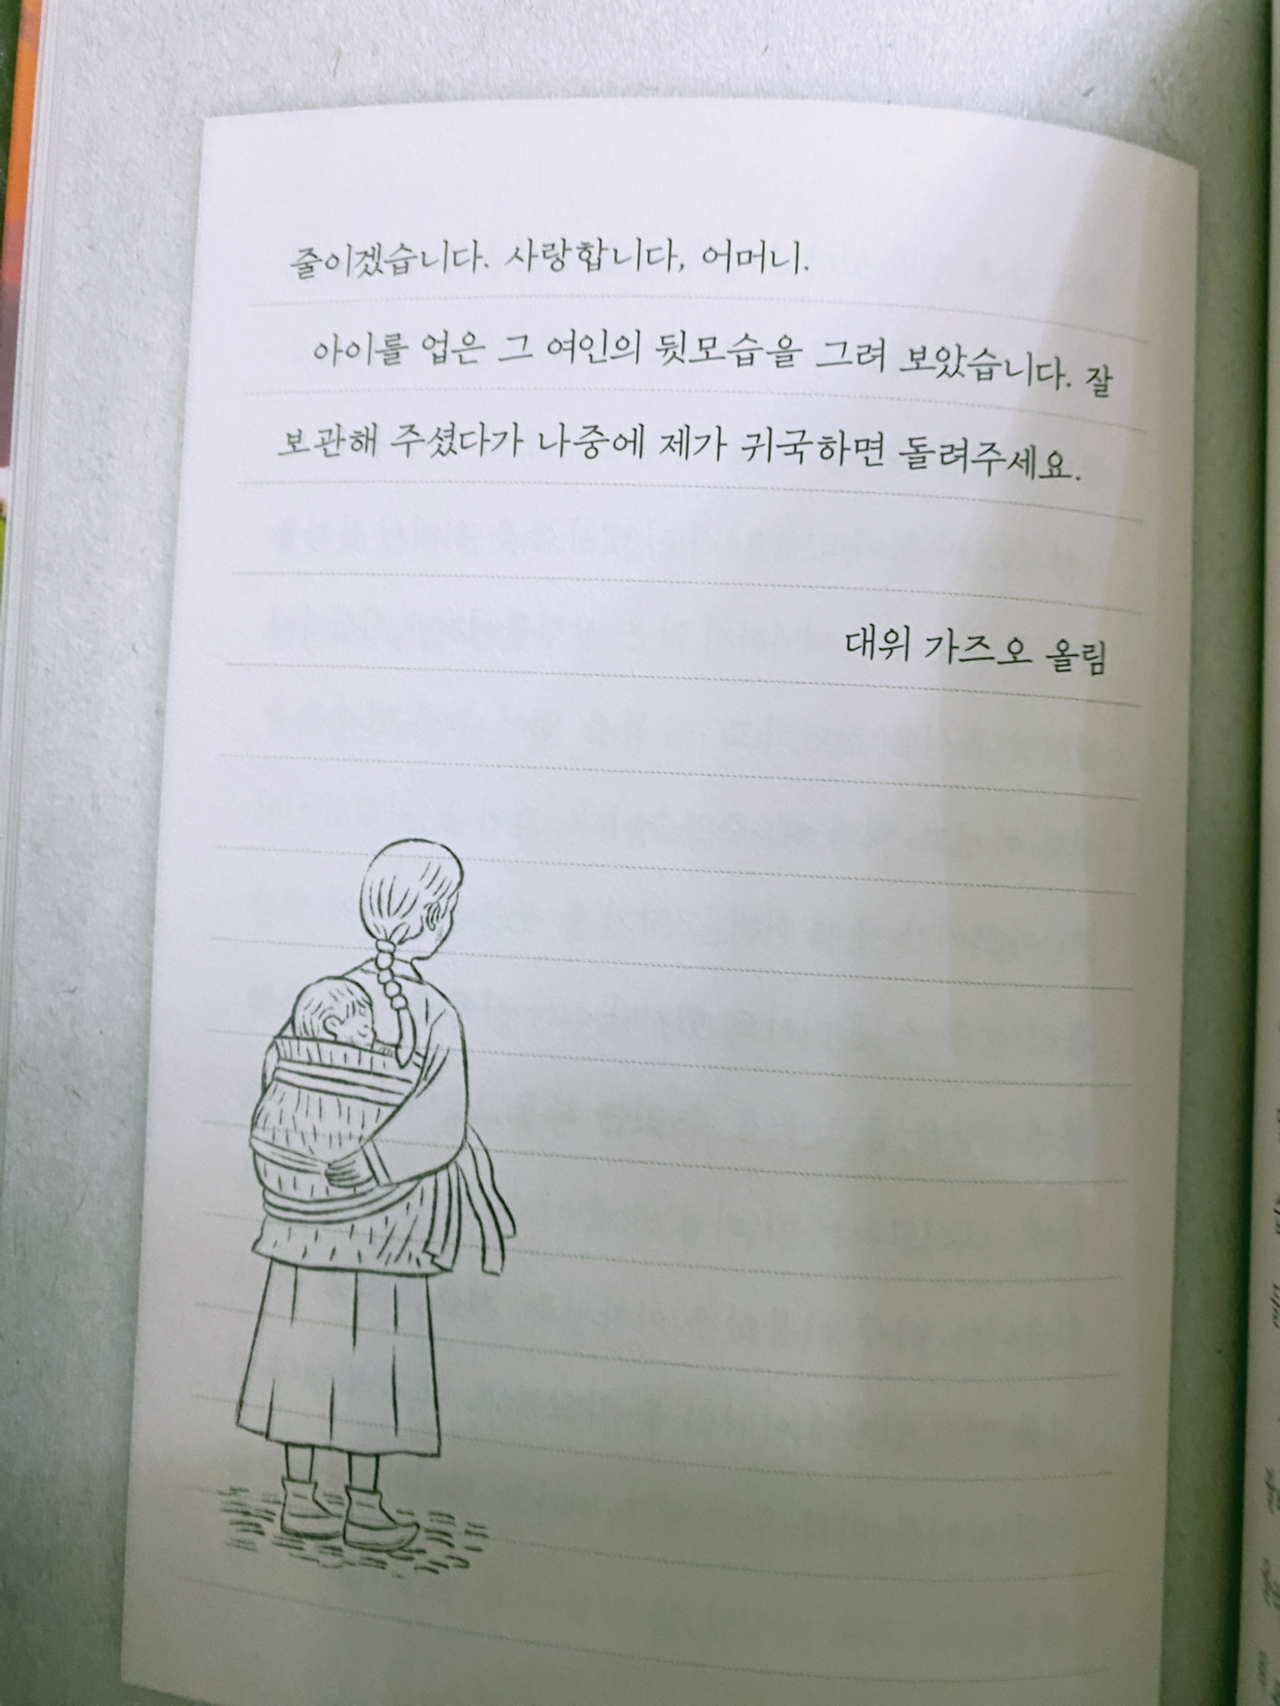 줄이겠습니다. 사랑합니다, 어머니.
아이를 업은 그 여인의 뒷모습을 그려 보았습니다. 잘
보관해 주셨다가 나중에 제가 귀국하면 돌려주세요.
대위 가즈오 올림